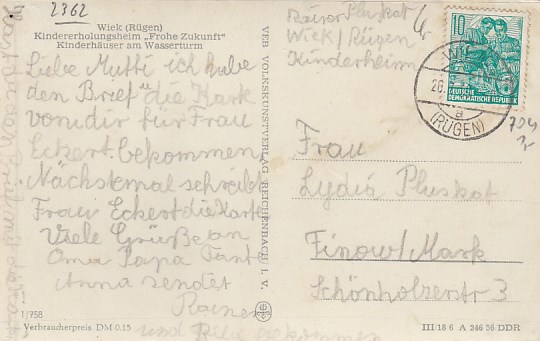 2362
Wiek (Rügen)
Kindererholungsheim „Frohe Zukunft"
Kinderhäuser am Wasserturm
Liebe Mutti ich habe
den Brief die Kark
von dir für Frau
Eckert bekommen
Nächstemal schreibt
Frau Eckert die Karte
Viele Grüße an
Oma Papa Tante
Anna sendet
Rainer
und bekommen
1/758
Verbraucherpreis DM 0.15
VEB VOLKSKUNSTVERLAG REICHENBACH I. V.
Pluskat
Wiek/Rügen
Kinderheim
10
DEUTSCHE
DEMOKRATISCHE REPUBLIK
a
(RÜGEN)
Frau
Lydia Pluskat
Finow/Mark
Schönholzerstr 3
III/18 6 A 246 56 DDR